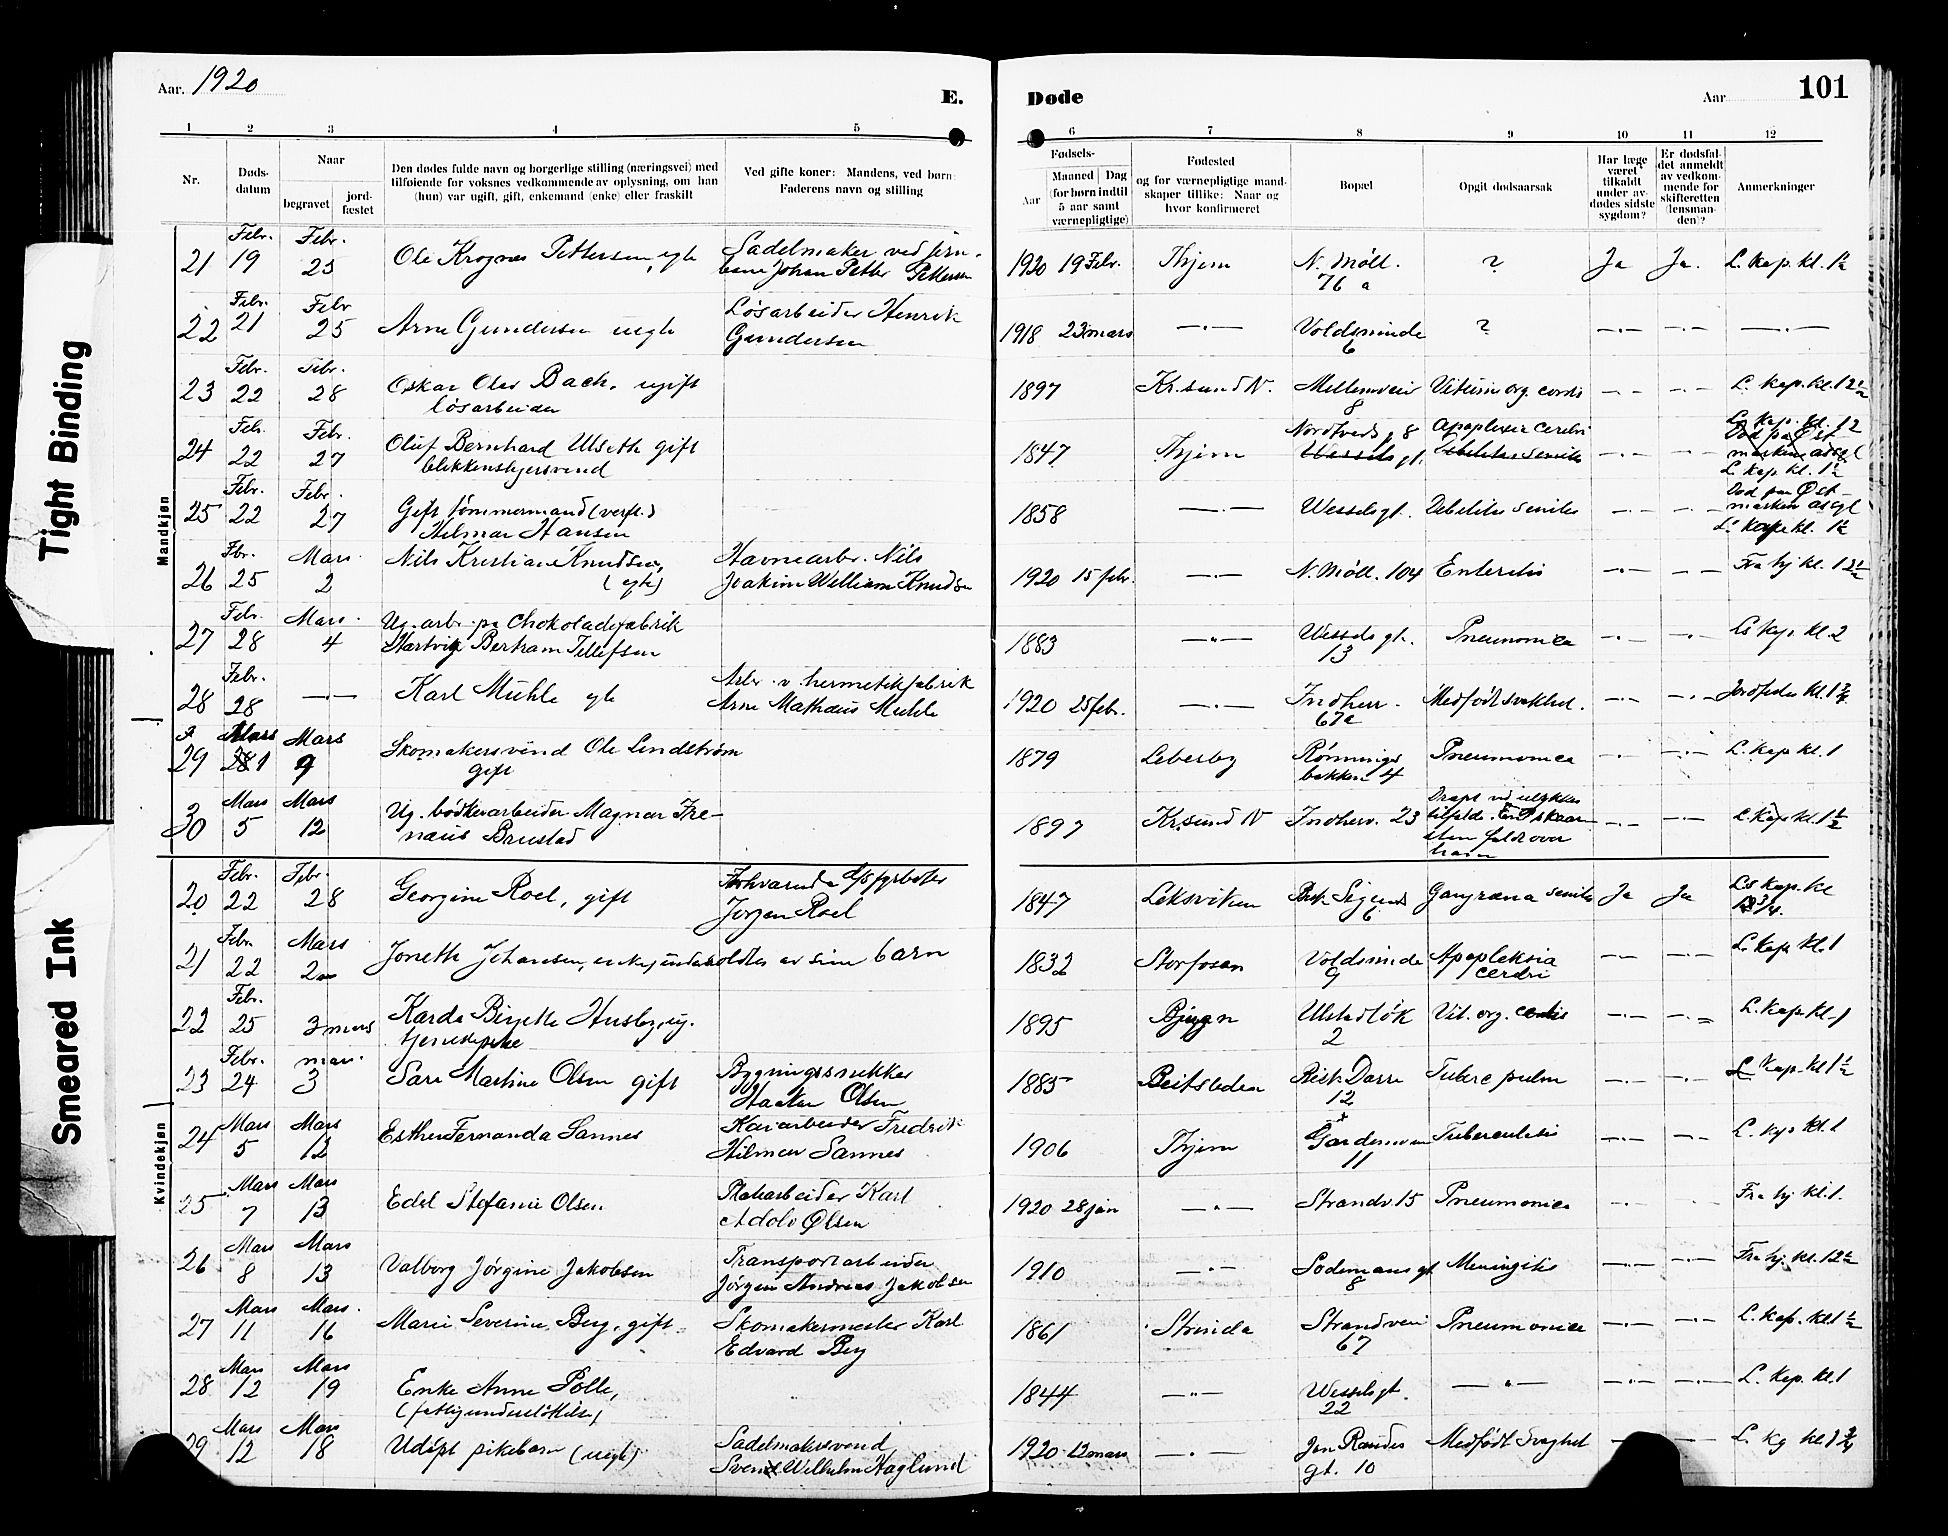 Tight Binding
Smeared Ink
Aar. 1920
E. Døde
Aar
101
1 2 3 4 5 6 7 8 9 10 11 12
Nr.
Døds-
datum
Naar
begravet
jord-
fæstet
Den dødes fulde navn og borgerlige stilling (næringsvei) med
tilføiende for voksnes vedkommende av oplysning, om han
(hun) var ugift, gift, enkemand (enke) eller fraskilt
Ved gifte koner: Mandens, ved børn:
Faderens navn og stilling
Fødsels-
Aar
Maaned Dag
(for børn indtil
5 aar samt
værnepligtige)
Fødested
og for værnepligtige mand-
skaper tillike: Naar og
hvor konfirmeret
Bopæl
Opgit dødsaarsak
Har læge
været
tilkaldt
under av-
dødes sidste
sygdom?
Er dødsfal-
det anmeldt
av vedkom-
mende for
skifteretten
(lensman-
den)?
Anmerkninger
Mandkjøn
21 Febr. 19 Febr. 25 Ole Krognes Pettersen, egte Sadelmaker ved jern-
bane Johan Petter Pettersen 1920 19 Febr. Thjem N. Möll.
76 a ? Ja Ja. L. kap. kl. 1½
22 Febr. 21 Febr 25 Arne Gundersen uegte Løsarbeider Henrik
Gundersen 1918 23 mars —·— Voldsminde
6 ? —·— —·— —·—
23 Febr. 22 Febr. 28 Oskar Olav Bach, ugift
løsarbeider 1897 Kr.sund N. Mellemveien
8 Vitium org. cordis —·— —·— L. kap. kl. 12½
24 Febr. 22 Febr. 27 Oluf Bernhard Ulseth gift
blikkensljersvend 1847 Thjem Nordtveds g. 8
Wessels gt. Apoplexia cerebri
Debilitas senilis —·— —·— L. kap. kl. 12
Død på Øst-
marken asyl
L. kap kl. 1½
25 Febr. 22 Febr. 27 Gift tømmermand (verft.)
Hilmar Hansen 1858 —·— Wesselsgt. Debilitas senilis —·— —·— Død paa Øst-
marken asyl
L. kape kl. 1½
26 Fbr. 25 Mars 2 Nils Kristian Knudsen,
(egte) Havnearb. Nils
Joakim William Knudsen 1920 15 febr. —·— N. Möll. 104 Enteritis —·— —·— Fra hj kl. 12½
27 Febr. 28 Mars 4 Ug. arb. på Chokoladefabrik
Hartvig Bertram Tellefsen 1883 —·— Wesselsgt.
13 Pneumonica —·— —·— Ls kap. kl. 2
28 Febr. 28 —·— Karl Mühle egte Arb. v. hermetikfabrik
Arne Mathæus Muhle 1920 25 febr. —·— Indherr.
67a Medfødt svakhet. —·— —·— Jordfestes kl. 1¾
29 Mars 1 Mars 9 Skomakersvend Ole Lindström
gift 1879 Lebesby Rønnings
bakken 4 Pneumonica —·— —·— L. kap kl. 1
30 Mars 5 Mars 12 Ug. bødkerarbeider Magnar Ire-
næus Brustad 1897 Kr.sund N Indherr. 23 Dræpt ved ulykkes
tilfælde. En
sten faldt over
ham —·— —·— L. Kap kl. 1½
Kvindekjøn
20 Febr. 22 Febr. 28 Georgine Roel, gift Forhværende
Jørgen Roel 1847 Leksviken Bisk. Sigurds
6 Gangræna senilis Ja Ja Ls kap. kl
1¾.
21 Febr. 22 Mars 2 Jonette Johansen, enke, underholdtes av sine barn 1832 Storfosen Voldsminde
9 Apopleksia
cerebri —·— —·— L. kap. kl. 1
22 Febr. 25 3 mars Karda Birgitte Husby, ug.
tjenestepike 1895 Bjugn Ulstadløk
2 Vit. org. cordis —·— —·— L. kap. kl. 1
23 Febr. 24 mars 3 Sara Martine Olsen gift Bygningssnekker
Haakon Olsen 1885 Beitstaden Bisk Darre
12 Tuberc pulm —·— —·— L Kap. kl 1½
24 Mars 5 Mars 12 Esther Fernanda Sannes Kaiarbeider Fredrik
Hilmar Sannes 1906 Thjem Gardemoen
11 Tuberculosis —·— —·— L. kap kl. 1
25 Mars 7 Mars 13 Edel Stefanie Olsen Platarbeider Karl
Adolv Olsen 1920 28 jan —·— Strandv. 15 Pneumonica Fra hj kl. 1.
26 Mars 8 Mars 13 Valborg Jørgine Jakobsen Transportarbeider
Jørgen Andreas Jakobsen 1910 —·— Sodemansgt
8 Meningitis —·— —·— Fra hj. kl. 12½
27 Mars 11 Mars 16 Marie Severine Berg, gift Skomakermester Karl
Edvard Berg 1861 Strinda Strandveien
67 Pneumonica —·— —·— L. kap. kl 1½
28 Mars 12 Mars 19 Enke Anne Polle,
(fattigunderstöttelse) 1844 —·— Wesselsgt.
22 —·— —·— —·— L. kap. kl. 1
29 Mars 12 Mars 18 Udöpt pikebarn (uegte) Sadelmakersvend
Svend Wilhelm Haglund 1920 12 mars —·— Jon Raudes
gt. 10 Medfødt Svaghet L. kap kl 1¾